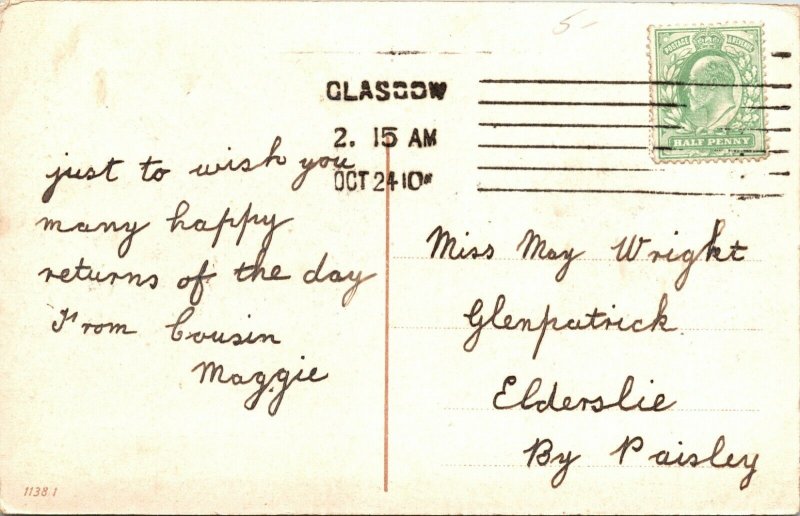 5-
POSTAGE & REVENUE
HALF PENNY
GLASGOW
2. 15 AM
OCT 24 10
just to wish you
many happy
returns of the day
From Cousin
Maggie
Miss May Wright
Glenpatrick
Elderslie
By Paisley
1138 1